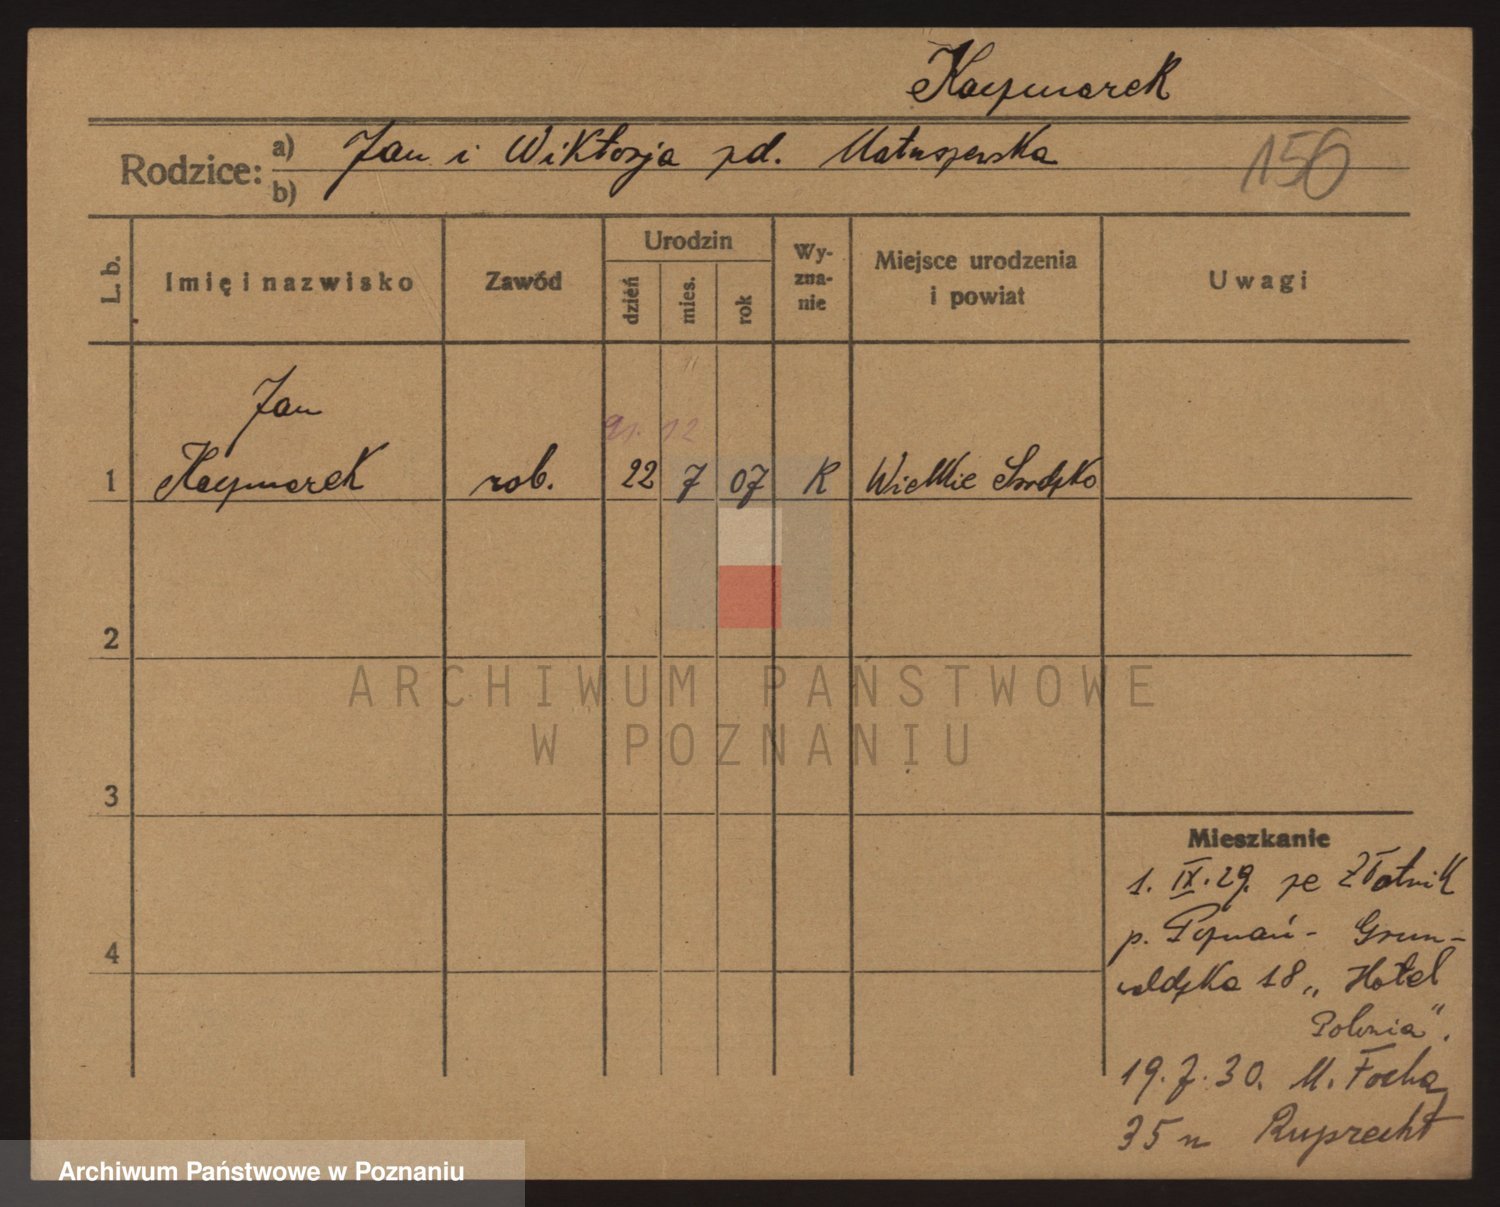 Kaczmarek
Rodzice: a) Jan i Wiktorja zd. Matuszewska
b)
156
L. b. Imię i nazwisko Zawód Urodzin dzień mies. rok Wyznanie Miejsce urodzenia i powiat Uwagi
21. 12
Jan
1 Kaczmarek rob. 22 7 07 K Wielkie Srodzko
2
3
4
Mieszkanie
1. IX. 29. ze Złotnik
p. Poznań - Grun-
waldzka 18 „Hotel
Polonia".
19. 7. 30. M. Focha
35 u Ruprecht
ARCHIWUM PAŃSTWOWE
W POZNANIU
Archiwum Państwowe w Poznaniu